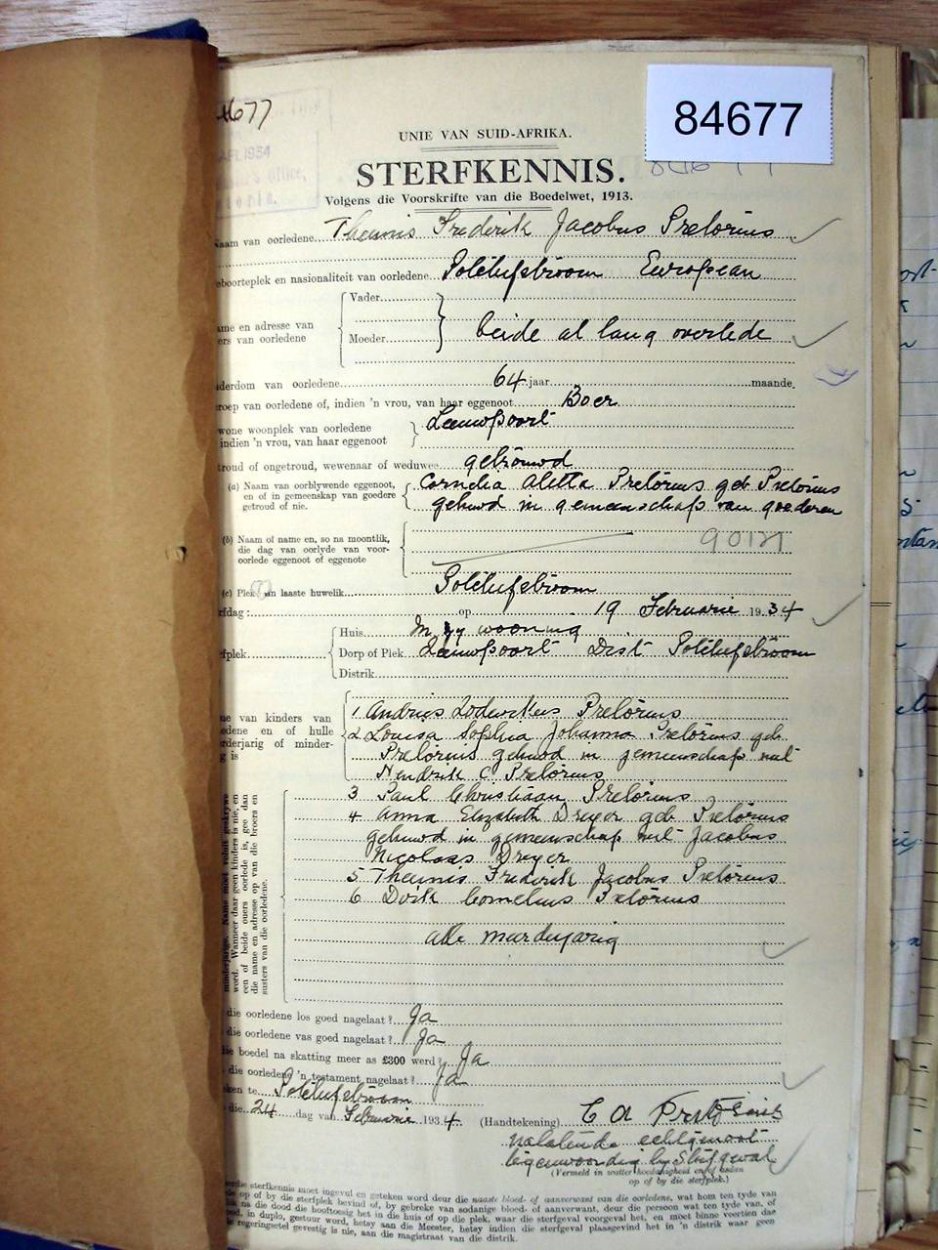 84677
UNIE VAN SUID-AFRIKA.
STERFKENNIS.
Volgens die Voorskrifte van die Boedelwet, 1913.
aam van oorledene Theunis Frederik Jacobus Pretorius
eboorteplek en nasionaliteit van oorledene Potchefstroom European
Vader
ame en adresse van
ers van oorledene beide al lang overlede
Moeder
derdom van oorledene 64 jaar maande.
roep van oorledene of, indien 'n vrou, van haar eggenoot Boer
wone woonplek van oorledene Leeuwpoort
indien 'n vrou, van haar eggenoot
troud of ongetroud, wewenaar of weduwee getrouwd
(a) Naam van oorblywende eggenoot, Cornelia Aletta Pretorius geb Pretorius
en of in gemeenskap van goedere gehuwd in gemeenschap van goederen
getroud of nie.
(b) Naam of name en, so na moontlik, 90121
die dag van oorlyde van voor-
oorlede eggenoot of eggenote
(c) Plek van laaste huwelik Potchefstroom
fdag: op 19 Februarie 1934
Huis In zy wooning
fplek Dorp of Plek Leeuwpoort Dist Potchefstroom
Distrik
me van kinders van 1 Andries Lodewikus Pretorius
edene en of hulle 2 Louisa Sophia Johanna Pretorius geb
erderjarig of minder- Pretorius gehuwd in gemeenschap met
g is Hendrik C. Pretorius
3 Paul Christiaan Pretorius
4 Anna Elizabeth Dreyer geb Pretorius
gehuwd in gemeenschap met Jacobus
Nicolaas Dreyer
5 Theunis Frederik Jacobus Pretorius
6 Dirk Cornelius Pretorius
alle meerderjarig
word. Wanneer daar geen kinders is nie, en
een of beide ouers oorlede is, gee dan
die name en adresse op van die broers en
susters van die oorledene.
die oorledene los goed nagelaat? Ja
die oorledene vas goed nagelaat? Ja
ie boedel na skatting meer as £300 werd? Ja
die oorledene 'n testament nagelaat? Ja
ken te Potchefstroom
die 24 dag van Februarie 1934. (Handtekening) C A Pretorius
nalatende echtgenoot
tegenwoordig by Sterfgeval
(Vermeld in watter hoedanigheid en of anwes
op of by die sterfplek.)
sterfkennis moet ingevul en geteken word deur die naaste bloed- of aanverwant van die oorledene, wat hom ten tyde van
op of by die sterfplek bevind of, by gebreke van sodanige bloed- of aanverwant, deur die persoon wat ten tyde van, of
na die dood die hooftoesig het in die huis of op die plek, waar die sterfgeval voorgeval het, en moet binne veertien dae
in duplo, gestuur word, hetsy aan die Meester, hetsy indien die sterfgeval plaasgevind het in 'n distrik waar geen
regeringsetel gevestig is nie, aan die magistraat van die distrik.